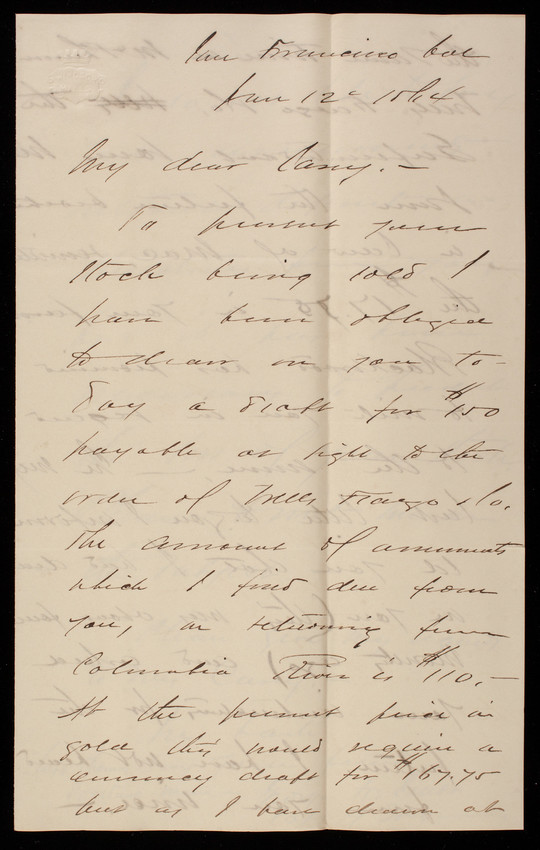 San Francisco Cal
Jan 12th 1864
My dear Casey.—
To prevent your
stock being sold I
have been obliged
to draw on you to-
day a draft for $150
payable at sight to the
order of Wells Fargo & Co.
The amount of assessments
which I find due from
you, on returning from
Columbia River is $110.—
At the present price in
gold this would require a
currency draft for $167.75
but as I have drawn at